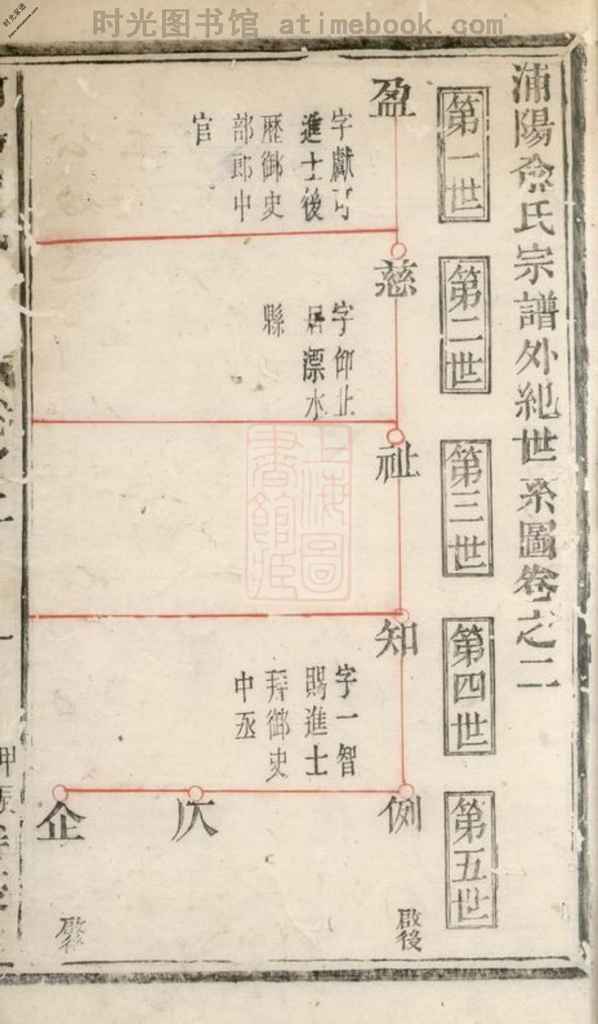 时光图书馆 - atimebook.com
蒲陽俞氏宗譜外紀世系圖卷之二
第一世
盈
字獻可
進士後
歷御史
部郎中
官
第二世
慈
字仰止
居漂水
縣
第三世
祉
第四世
知
字一智
賜進士
拜御史
中丞
第五世
例
啟後
仄
企
啟後
上海圖
書館藏